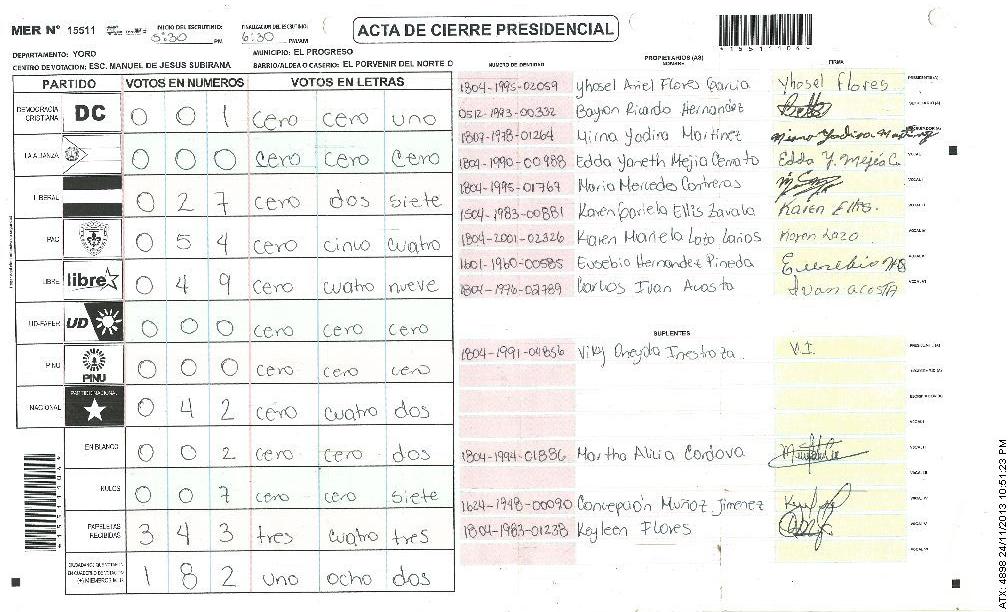 MER N° 15511
INICIO DEL ESCRUTINIO:
5:30 PM
FINALIZACION DEL ESCRUTINIO:
6:30 PM/AM
ACTA DE CIERRE PRESIDENCIAL
DEPARTAMENTO: YORO
MUNICIPIO: EL PROGRESO
CENTRO DE VOTACION: ESC. MANUEL DE JESUS SUBIRANA
BARRIO/ALDEA O CASERIO: EL PORVENIR DEL NORTE
PARTIDO VOTOS EN NUMEROS VOTOS EN LETRAS
DEMOCRACIA CRISTIANA DC 0 0 1 cero cero uno
LA ALIANZA 0 0 0 cero cero cero
LIBERAL 0 2 7 cero dos siete
PAC 0 5 4 cero cinco cuatro
LIBRE libre 0 4 9 cero cuatro nueve
UD-FAPER UD 0 0 0 cero cero cero
PINU PINU 0 0 0 cero cero cero
NACIONAL PARTIDO NACIONAL 0 4 2 cero cuatro dos
EN BLANCO 0 0 2 cero cero dos
NULOS 0 0 7 cero cero siete
PAPELETAS RECIBIDAS 3 4 3 tres cuatro tres
1 8 2 uno ocho dos
PROPIETARIOS (AS)
NUMERO DE IDENTIDAD NOMBRE FIRMA
1804-1995-02059 Yhosel Ariel Flores Garcia Yhosel Flores
0512-1993-00332 Bayron Ricardo Hernandez
1807-1978-01264 Mirna Yadira Martinez Mirna Yadira Martinez
1804-1990-00988 Edda Yaneth Mejia Cerrato Edda Y. Mejia C.
1804-1995-01769 Maria Mercedes Contreras
1504-1983-00881 Karen Gariela Ellis Zavala Karen Ellis.
1804-2001-02326 Karen Mariela Lazo Larios Karen Lazo
1601-1960-00585 Eusebio Hernandez Pineda Eusebio
1804-1976-02789 Carlos Ivan Acosta Ivan acosta
SUPLENTES
1804-1991-04856 Vilky Oneyda Inestroza. V.I.
1804-1994-01886 Martha Alicia Cordova
1624-1948-00090 Concepción Muñoz Jimenez
1804-1983-01238 Keyleen Flores
ATX: 4898 24/11/2013 10:51:23 PM